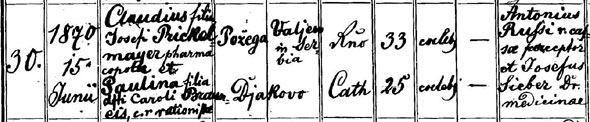 30.
1870
15ª
Junii
Claudius filius
Josefi Prickel-
mayer pharma
copolæ et
Paulina filia
dfti Caroli Braun-
eis, c. r. rationista
Požega
Djakovo
Valjevo
in Ser-
bia
Rno
Cath
33
25
coelebs
coelebs
—
—
Antonius
Ruffi
præceptor
et Josefus
Sieber Dr.
medicinae